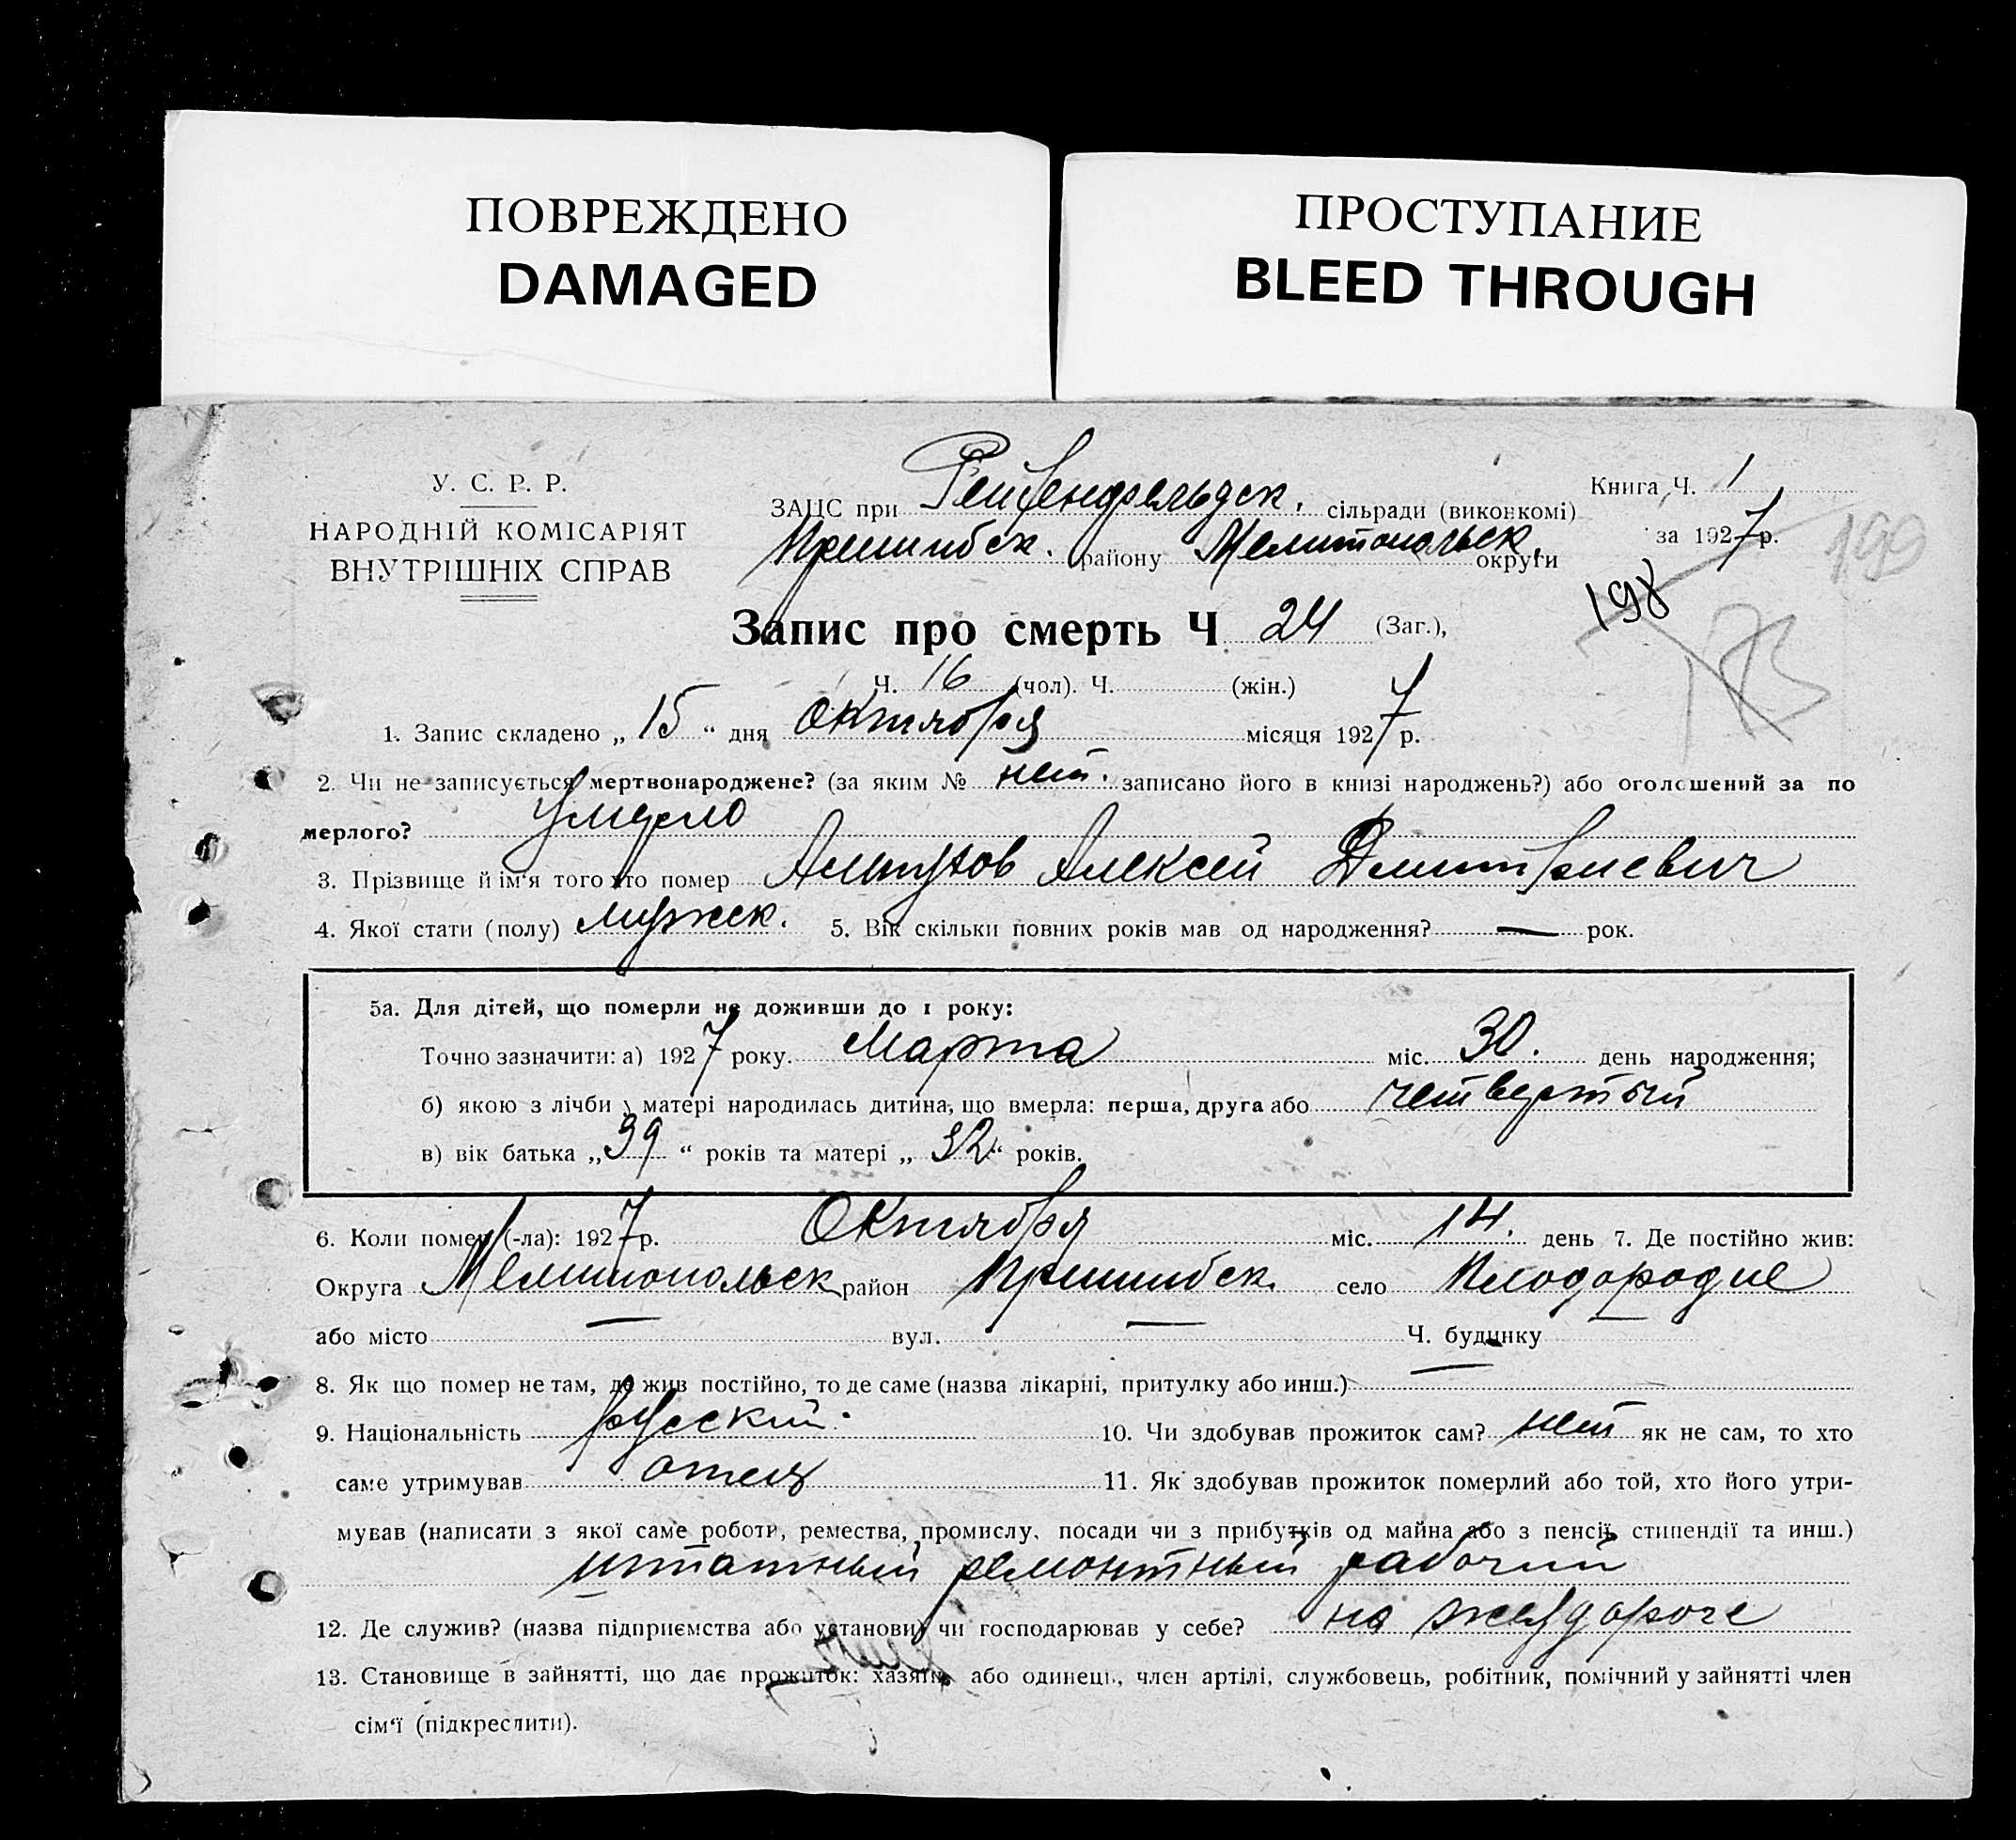 ПОВРЕЖДЕНО
DAMAGED
ПРОСТУПАНИЕ
BLEED THROUGH
У. С. Р. Р.
НАРОДНІЙ КОМІСАРІЯТ
ВНУТРІШНІХ СПРАВ
ЗАЦС при Рейхенфельдск. сільради (виконкомі)
Пришибск. району Мелитопольск. округи
Книга Ч. 1
за 1927 р.
199
198
Запис про смерть Ч 24 (Заг.),
Ч. 16 (чол). Ч. (жін.)
1. Запис складено „ 15 “ дня Октября місяця 1927 р.
2. Чи не записується мертвонароджене? (за яким № нет. записано його в книзі народжень?) або оголошений за по
мерлого? умерло
3. Прізвище й ім'я того хто помер Алтухов Алексей Дмитриевич
4. Якої стати (полу) мужск. 5. Вік скільки повних років мав од народження? — рок.
5а. Для дітей, що померли не доживши до 1 року:
Точно зазначити: а) 1927 року. Марта міс. 30. день народження;
б) якою з лічби у матері народилась дитина, що вмерла: перша, друга або четвертый
в) вік батька „ 39 “ років та матері „ 32 “ років.
6. Коли помер (-ла): 1927 р. Октября міс. 14. день 7. Де постійно жив:
Округа Мелитопольск район Пришибск. село Плодородие
або місто — вул. — Ч. будинку —
8. Як що помер не там, де жив постійно, то де саме (назва лікарні, притулку або инш.) —
9. Національність русский. 10. Чи здобував прожиток сам? нет як не сам, то хто
саме утримував отец 11. Як здобував прожиток померлий або той, хто його утри-
мував (написати з якої саме роботи, ремества, промислу, посади чи з прибутків од майна або з пенсії, стипендії та инш.)
штатный ремонтный рабочий
12. Де служив? (назва підприємства або установи) чи господарював у себе? на желдороге
13. Становище в зайнятті, що дає прожиток: хазяїн, або одинець, член артілі, службовець, робітник, помічний у зайнятті член
сім'ї (підкреслити).